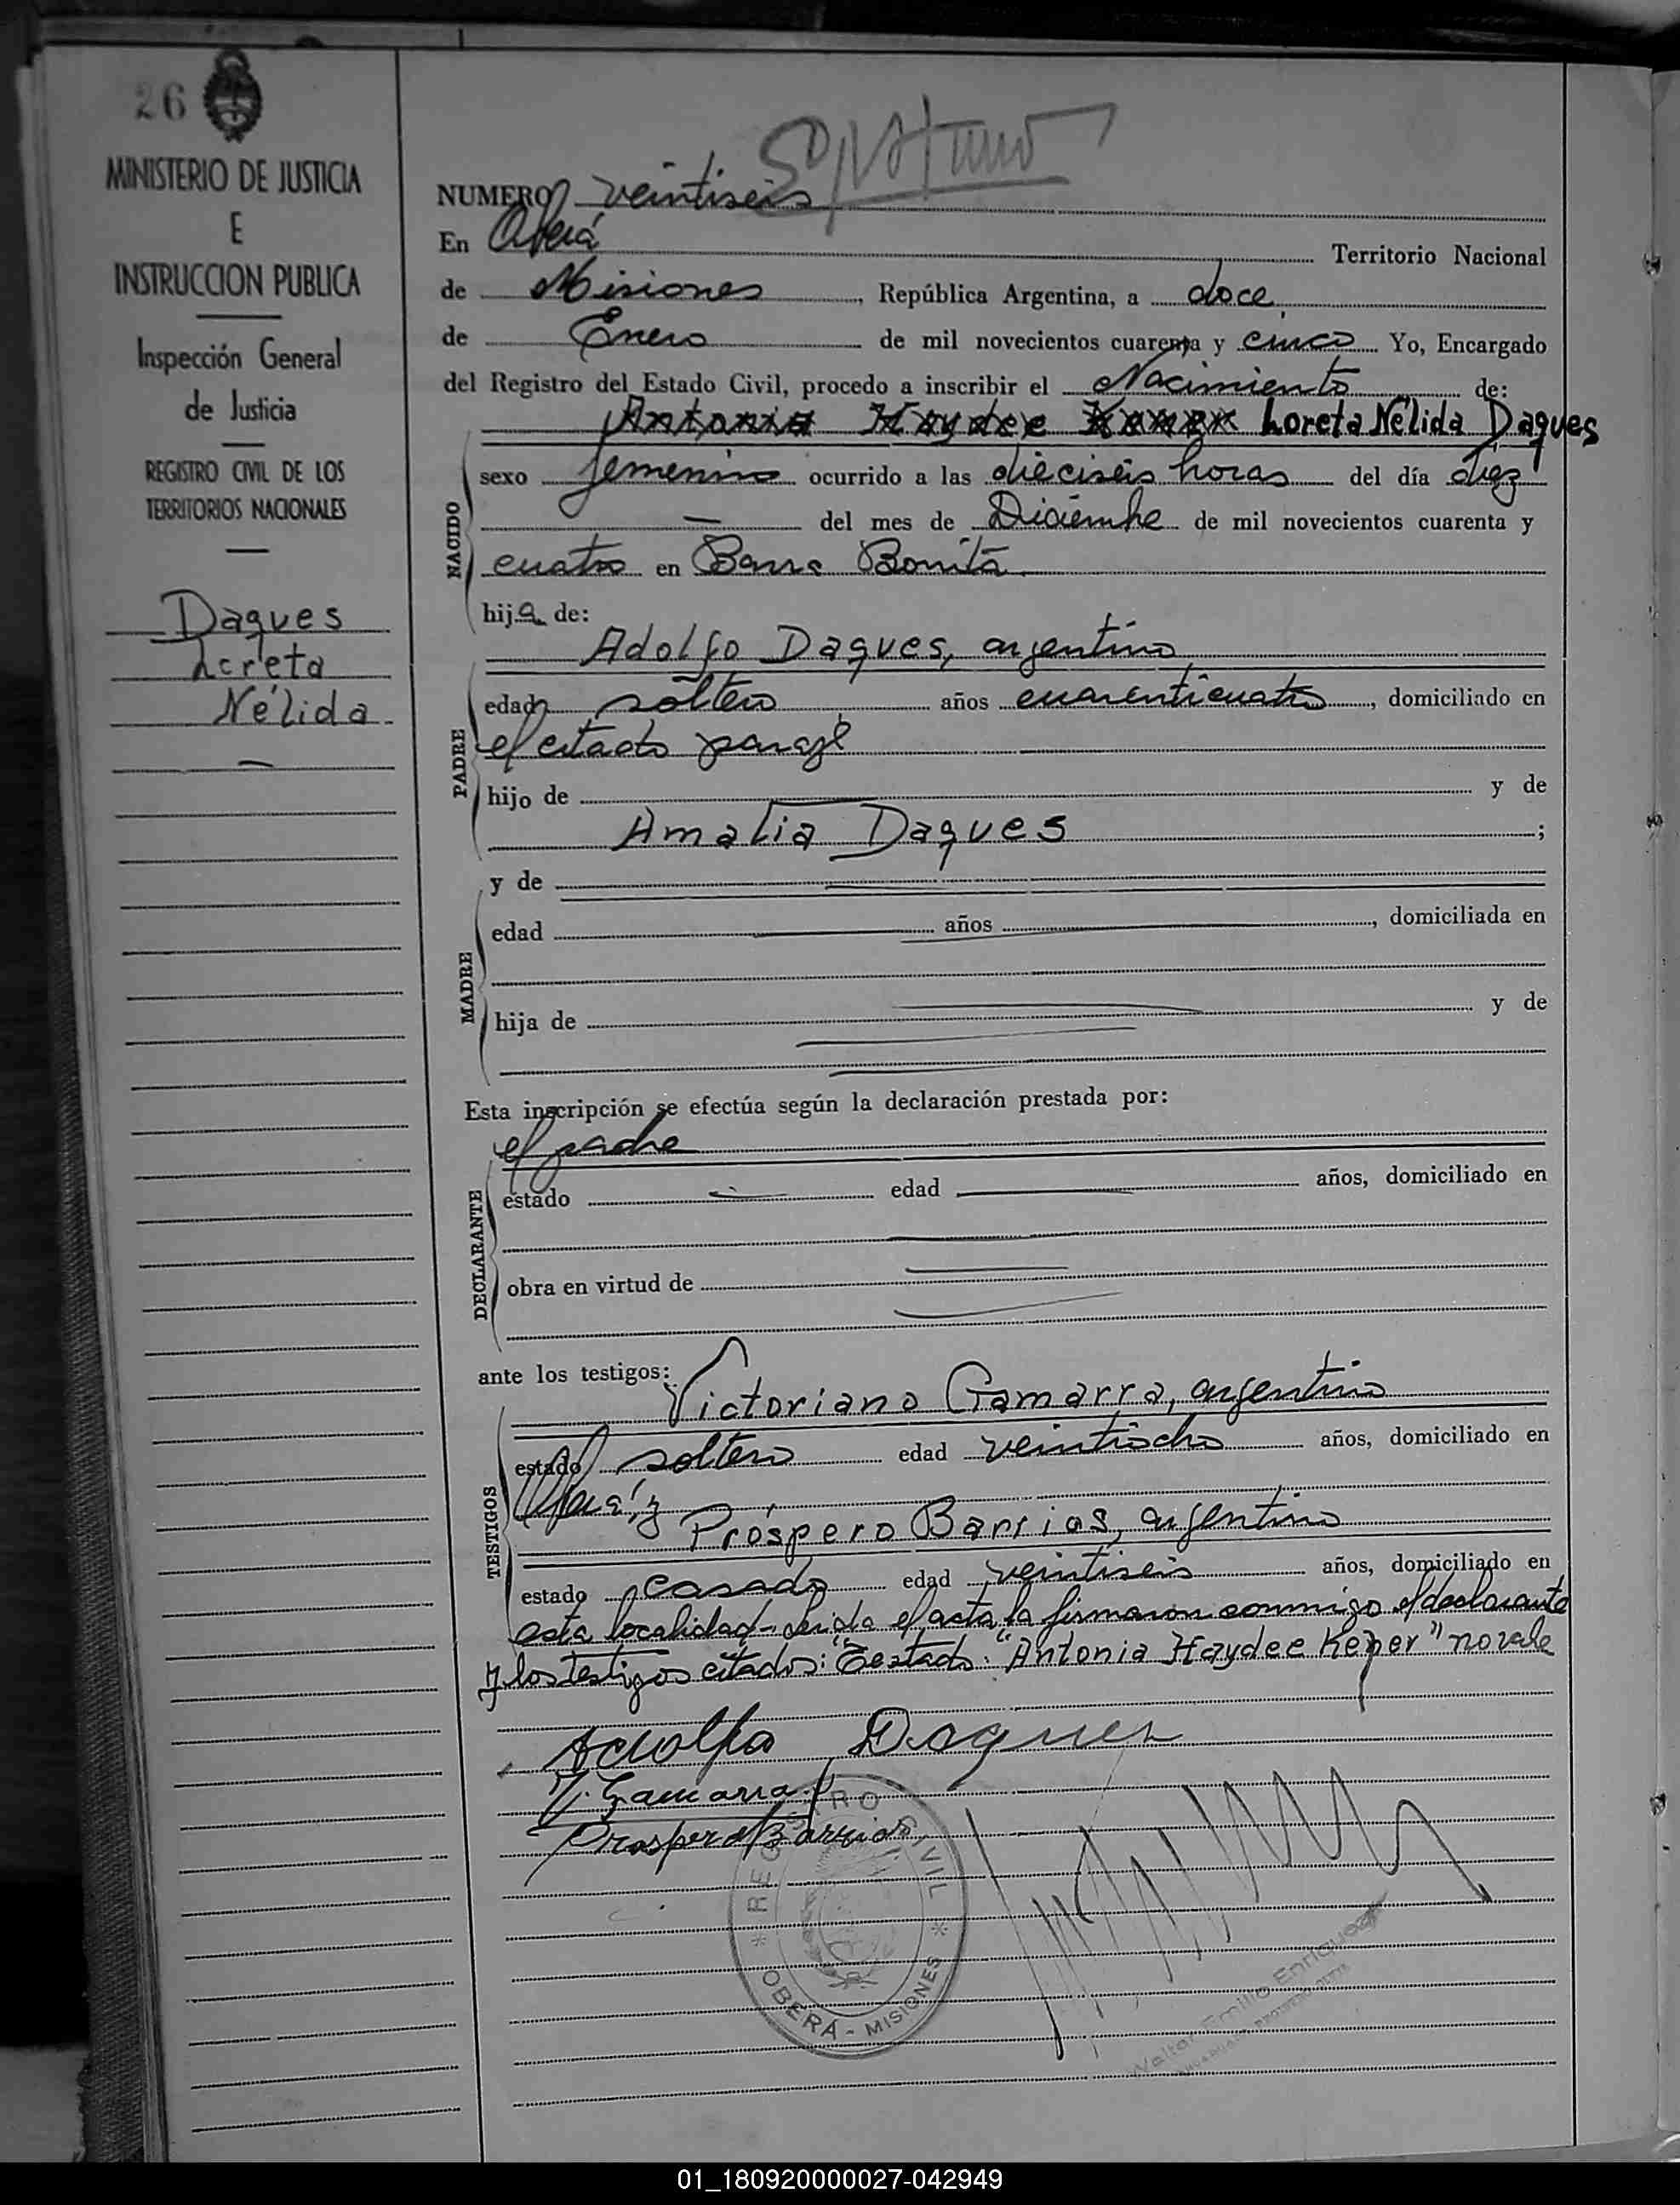 26
MINISTERIO DE JUSTICIA
E
INSTRUCCION PUBLICA
Inspección General
de Justicia
REGISTRO CIVIL DE LOS
TERRITORIOS NACIONALES
Daques
Loreta
Nélida
NUMERO veintiseis
En Oberá Territorio Nacional
de Misiones, República Argentina, a doce
de Enero de mil novecientos cuarenta y cinco Yo, Encargado
del Registro del Estado Civil, procedo a inscribir el Nacimiento de:
Antonia Haydee Loreta Nélida Daques
NACIDO
sexo femenino ocurrido a las dieciseis horas del día diez
— del mes de Diciembre de mil novecientos cuarenta y
cuatro en Barra Bonita
hija de:
PADRE
Adolfo Daques, argentino
edad soltero años cuarenticuatro, domiciliado en
el citado paraje
hijo de y de
Amalia Daques ;
MADRE
y de
edad años , domiciliada en
hija de y de
Esta inscripción se efectúa según la declaración prestada por:
el padre
DECLARANTE
estado edad años, domiciliado en
obra en virtud de
ante los testigos:
TESTIGOS
Victoriano Gamarra, argentino
estado soltero edad veintiocho años, domiciliado en
Próspero Barrios, argentino
estado casado edad veintiseis años, domiciliado en
esta localidad. Leida el acta, la firmaron conmigo el declarante
y los testigos citados: Testado: "Antonia Haydee Keper" no vale
Adolfo Daques
V. Gamarra
Prospero Barrios
REGISTRO CIVIL
OBERA - MISIONES
Walter Emilio Enriquez
01_180920000027-042949